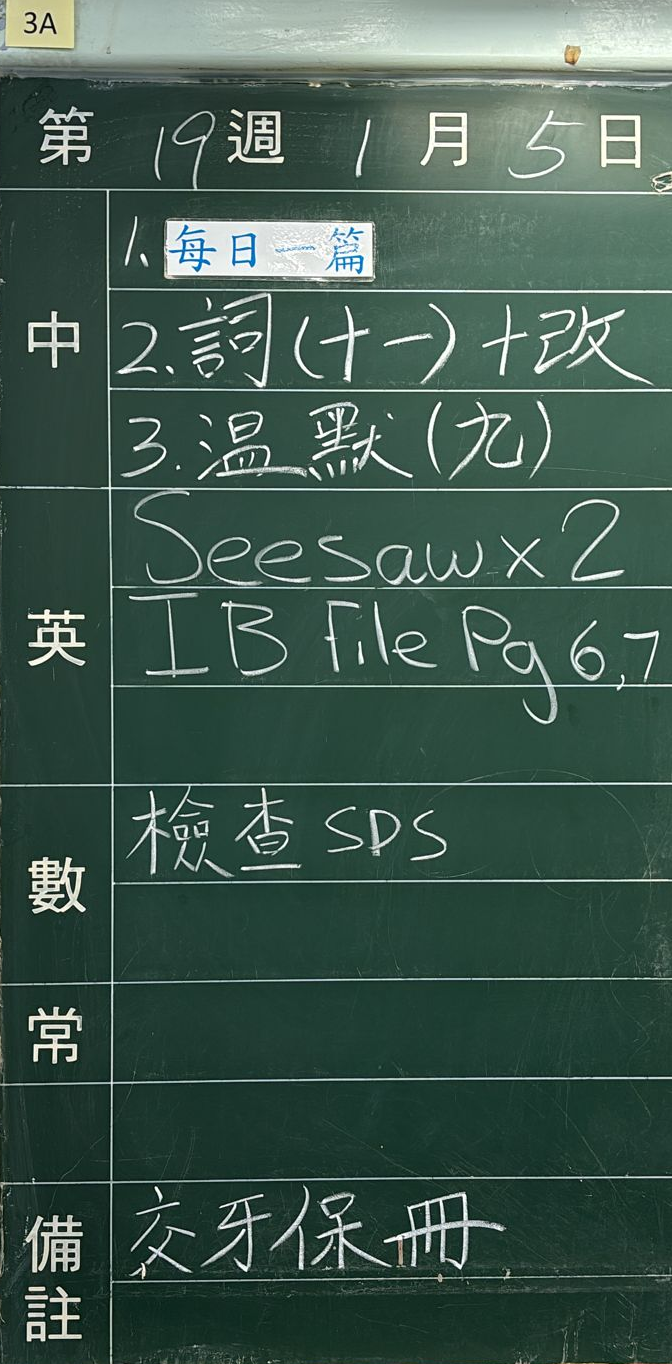 3A
第 19 週 1 月 5 日
中
1. 每日一篇
2. 詞(十一)+改
3. 温默(九)
英
Seesaw x 2
IB File Pg 6,7
數
檢查 SDS
常
備註
交牙保冊